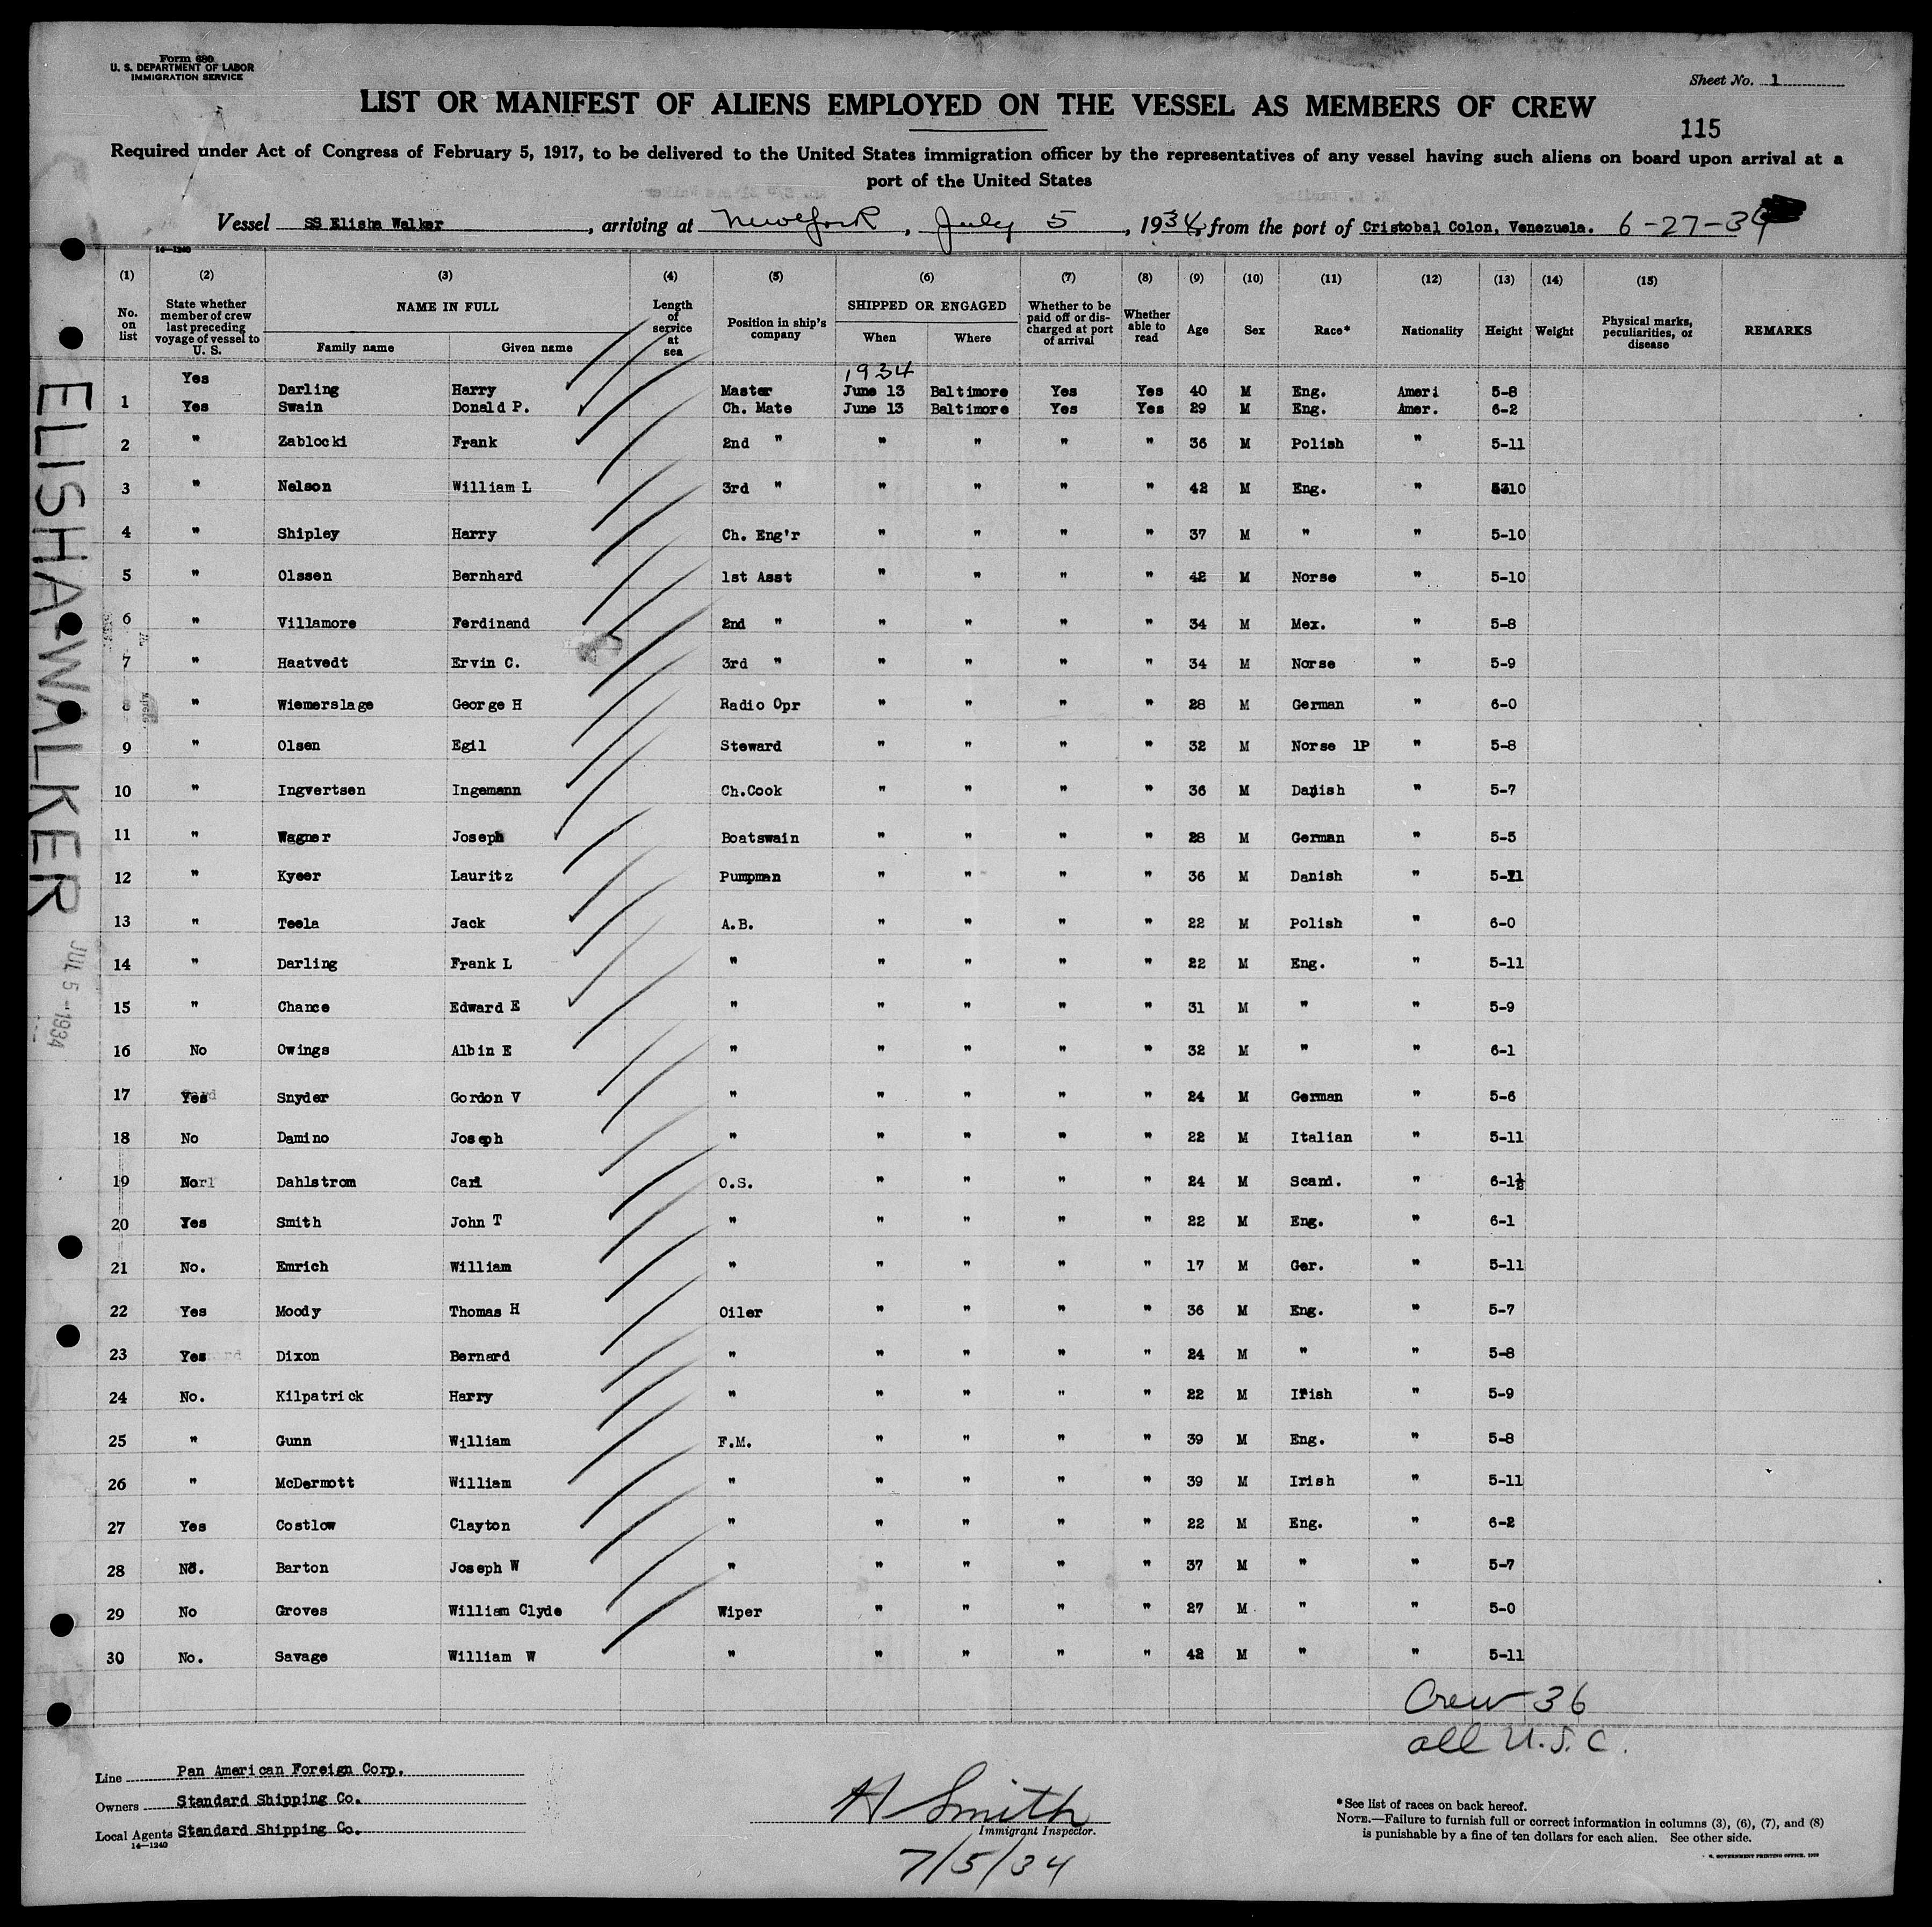 Form 680
U. S. DEPARTMENT OF LABOR
IMMIGRATION SERVICE
Sheet No. 1
LIST OR MANIFEST OF ALIENS EMPLOYED ON THE VESSEL AS MEMBERS OF CREW
115
Required under Act of Congress of February 5, 1917, to be delivered to the United States immigration officer by the representatives of any vessel having such aliens on board upon arrival at a
port of the United States
Vessel SS Elisha Walker, arriving at New York, July 5, 1934, from the port of Cristobal Colon, Venezuela. 6-27-34
14—1240
(1) (2) (3) (4) (5) (6) (7) (8) (9) (10) (11) (12) (13) (14) (15)
No. on list
State whether member of crew last preceding voyage of vessel to U. S.
NAME IN FULL
Family name Given name
Length of service at sea
Position in ship's company
SHIPPED OR ENGAGED
When Where
Whether to be paid off or discharged at port of arrival
Whether able to read
Age Sex Race* Nationality Height Weight
Physical marks, peculiarities, or disease
REMARKS
1934
Yes Darling Harry Master June 13 Baltimore Yes Yes 40 M Eng. Ameri 5-8
1 Yes Swain Donald P. Ch. Mate June 13 Baltimore Yes Yes 29 M Eng. Amer. 6-2
2 " Zablocki Frank 2nd " " " " " 36 M Polish " 5-11
3 " Nelson William L 3rd " " " " " 42 M Eng. " 10
4 " Shipley Harry Ch. Eng'r " " " " 37 M " " 5-10
5 " Olssen Bernhard 1st Asst " " " " 42 M Norse " 5-10
6 " Villamore Ferdinand 2nd " " " " " 34 M Mex. " 5-8
7 " Haatvedt Ervin C. 3rd " " " " " 34 M Norse " 5-9
8 " Wiemerslage George H Radio Opr " " " " 28 M German " 6-0
9 " Olsen Egil Steward " " " " 32 M Norse 1P " 5-8
10 " Ingvertsen Ingemann Ch.Cook " " " " 36 M Danish " 5-7
11 " Wagner Joseph Boatswain " " " " 28 M German " 5-5
12 " Kyeer Lauritz Pumpman " " " " 36 M Danish " 5-11
13 " Teela Jack A.B. " " " " 22 M Polish " 6-0
14 " Darling Frank L " " " " " 22 M Eng. " 5-11
15 " Chance Edward E " " " " " 31 M " " 5-9
16 No Owings Albin E " " " " " 32 M " " 6-1
17 Yes Snyder Gordon V " " " " " 24 M German " 5-6
18 No Damino Joseph " " " " " 22 M Italian " 5-11
19 No Dahlstrom Carl O.S. " " " " 24 M Scand. " 6-1½
20 Yes Smith John T " " " " " 22 M Eng. " 6-1
21 No. Emrich William " " " " " 17 M Ger. " 5-11
22 Yes Moody Thomas H Oiler " " " " 36 M Eng. " 5-7
23 Yes Dixon Bernard " " " " " 24 M " " 5-8
24 No. Kilpatrick Harry " " " " " 22 M Irish " 5-9
25 " Gunn William F.M. " " " " 39 M Eng. " 5-8
26 " McDermott William " " " " " 39 M Irish " 5-11
27 Yes Costlow Clayton " " " " " 22 M Eng. " 6-2
28 No. Barton Joseph W " " " " " 37 M " " 5-7
29 No Groves William Clyde Wiper " " " " 27 M " " 5-0
30 No. Savage William W " " " " " 42 M " " 5-11
Crew 36
all U.S.C.
ELISHA-WALKER
JUL 5 - 1934
Line Pan American Foreign Corp.
Owners Standard Shipping Co.
Local Agents Standard Shipping Co.
14—1240
H Smith
Immigrant Inspector.
7/5/34
*See list of races on back hereof.
NOTE.—Failure to furnish full or correct information in columns (3), (6), (7), and (8)
is punishable by a fine of ten dollars for each alien. See other side.
GOVERNMENT PRINTING OFFICE.